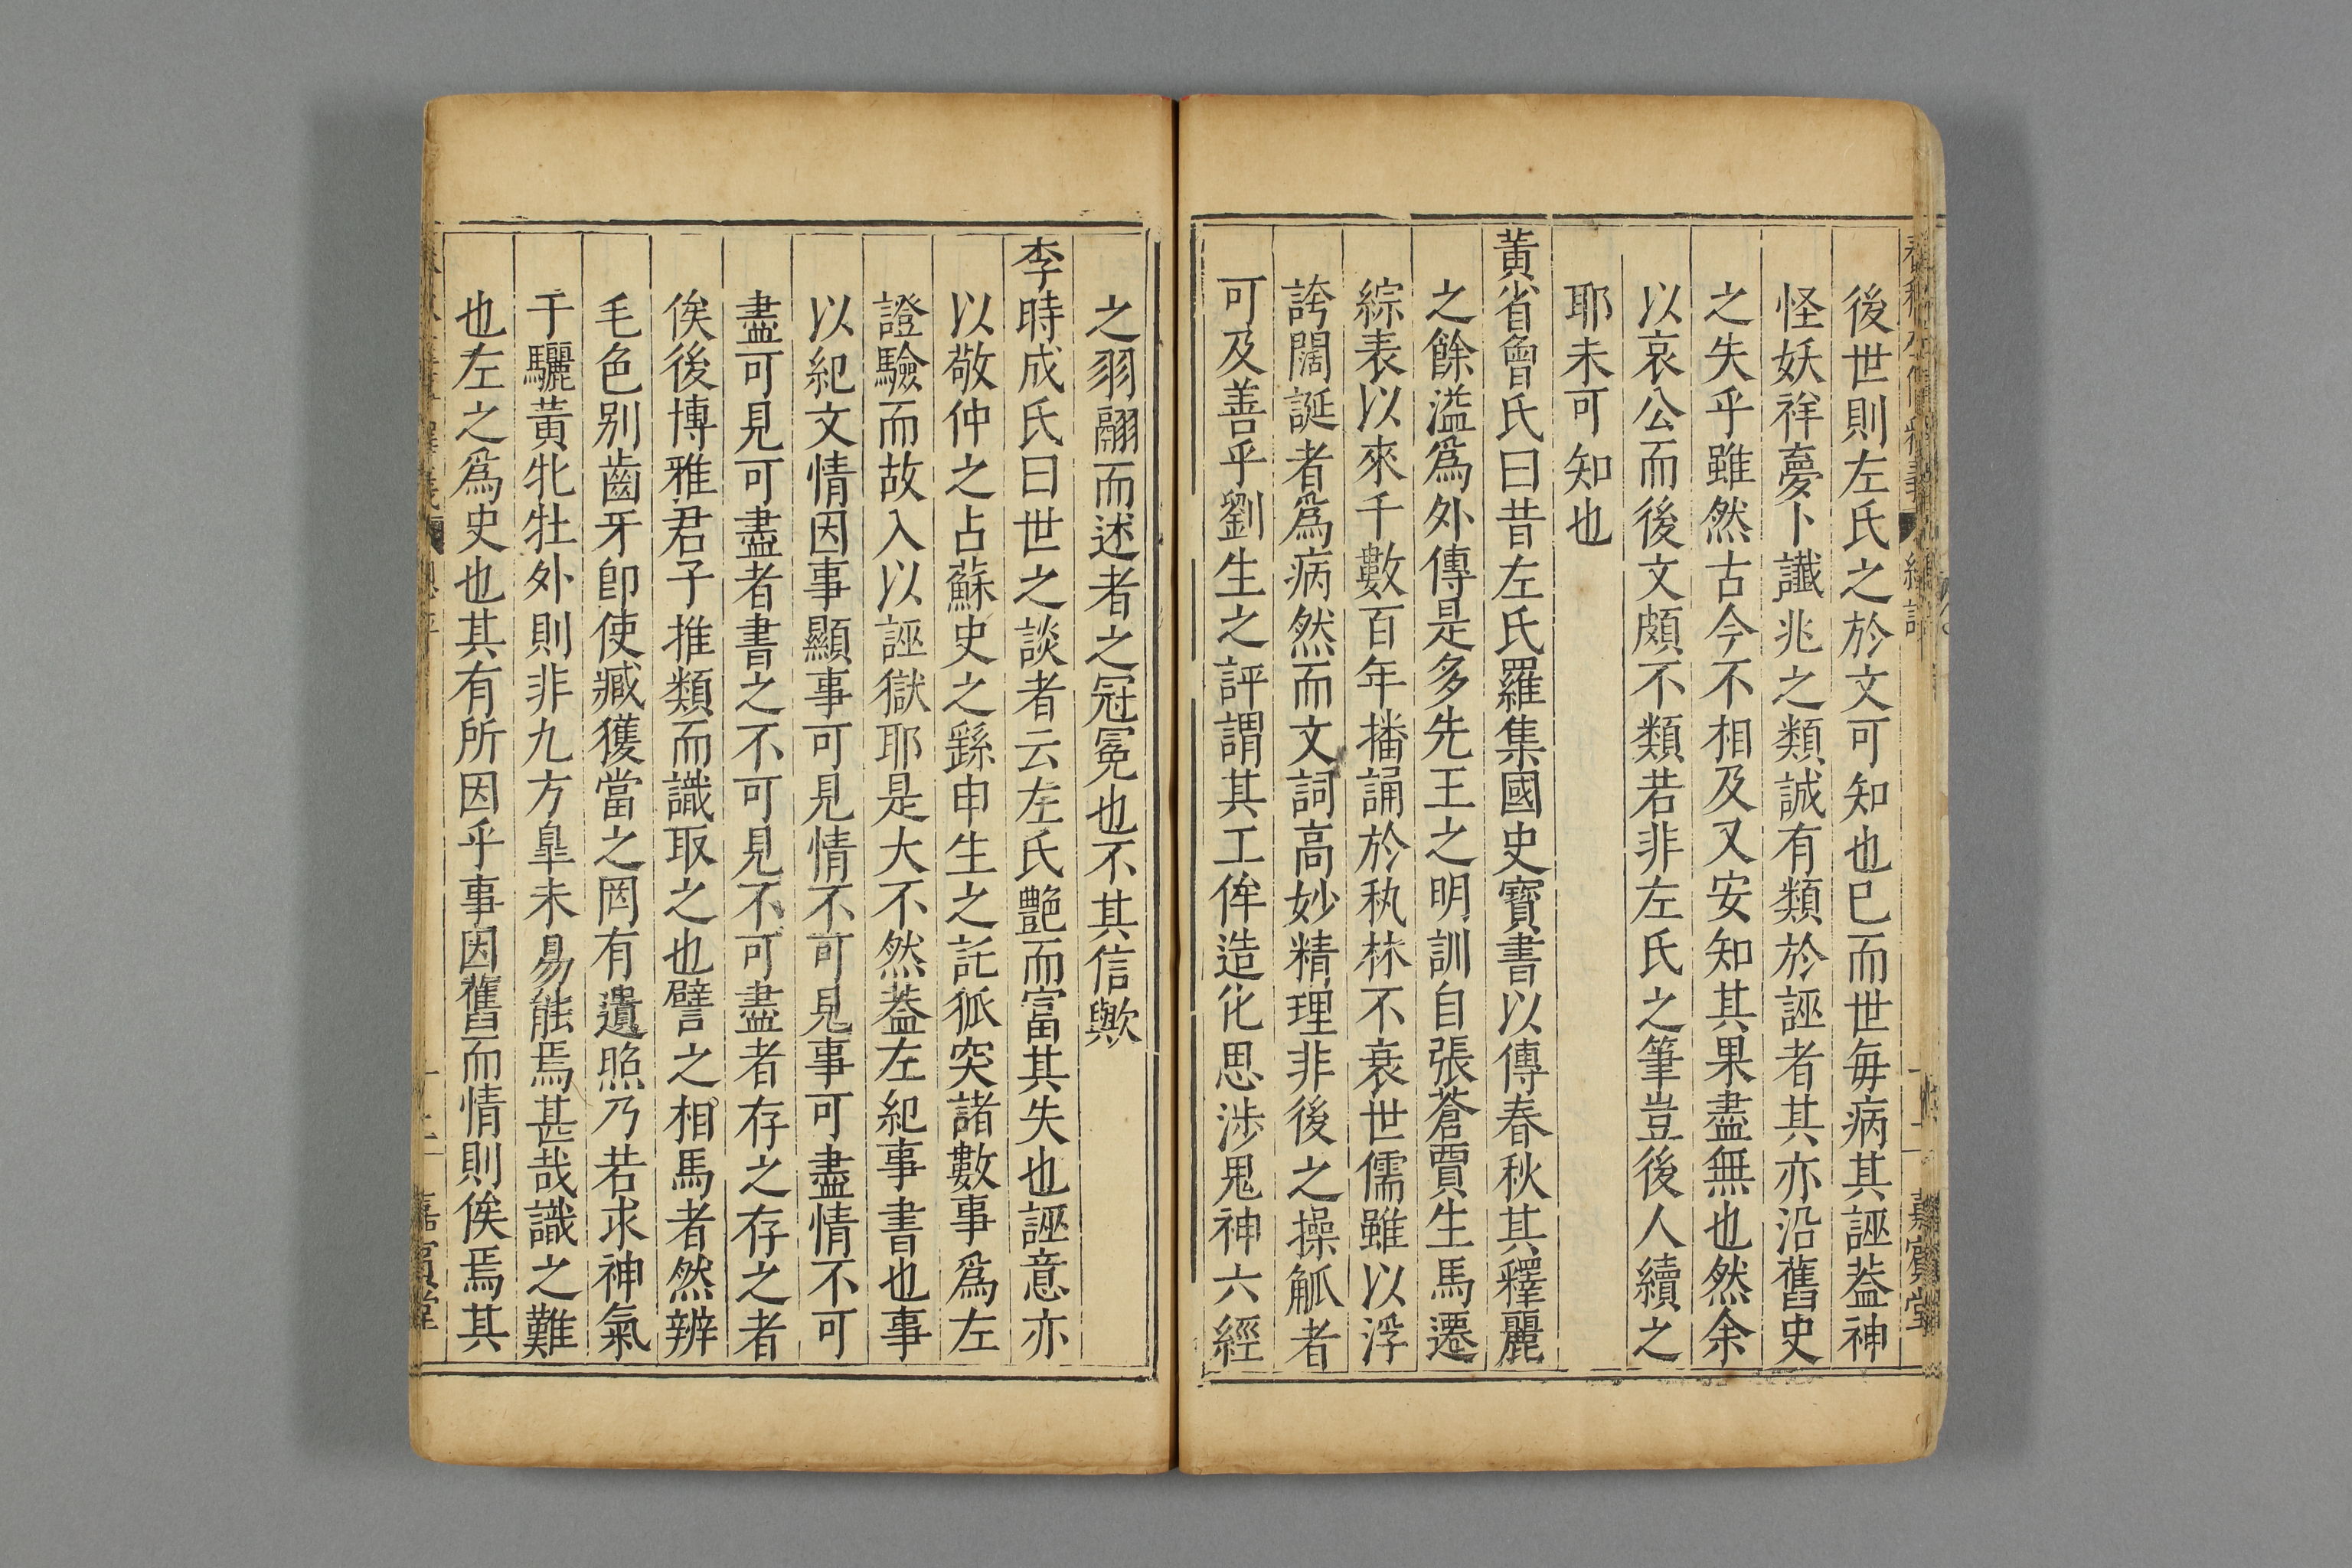 後世則左氏之於文可知也巳而世毎病其誣葢神
怪妖祥夣卜讖兆之類誠有類於誣者其亦沿舊史
之失乎雖然古今不相及又安知其果盡無也然余
以哀公而後文頗不類若非左氏之筆豈後人續之
耶未可知也
黃省曾氏曰昔左氏羅集國史寳書以傳春秋其釋麗
之餘溢爲外傳是多先王之明訓自張蒼賈生馬遷
綜表以來千數百年播誦於秇林不衰世儒雖以浮
誇闊誕者爲病然而文詞高妙精理非後之操觚者
可及善乎劉生之評謂其工侔造化思涉鬼神六經
之羽翮而述者之冠冕也不其信歟
李時成氏曰世之談者云左氏艶而富其失也誣意亦
以敬仲之占蘇史之繇申生之託狐突諸數事爲左
證驗而故入以誣獄耶是大不然葢左紀事書也事
以紀文情因事顯事可見情不可見事可盡情不可
盡可見可盡者書之不可見不可盡者存之存之者
俟後博雅君子推類而識取之也譬之相馬者然辨
毛色别齒牙卽使臧獲當之罔有遺照乃若求神氣
于驪黃牝牡外則非九方臯未易能焉甚哉識之難
也左之爲史也其有所因乎事因舊而情則俟焉其
嘉賓堂